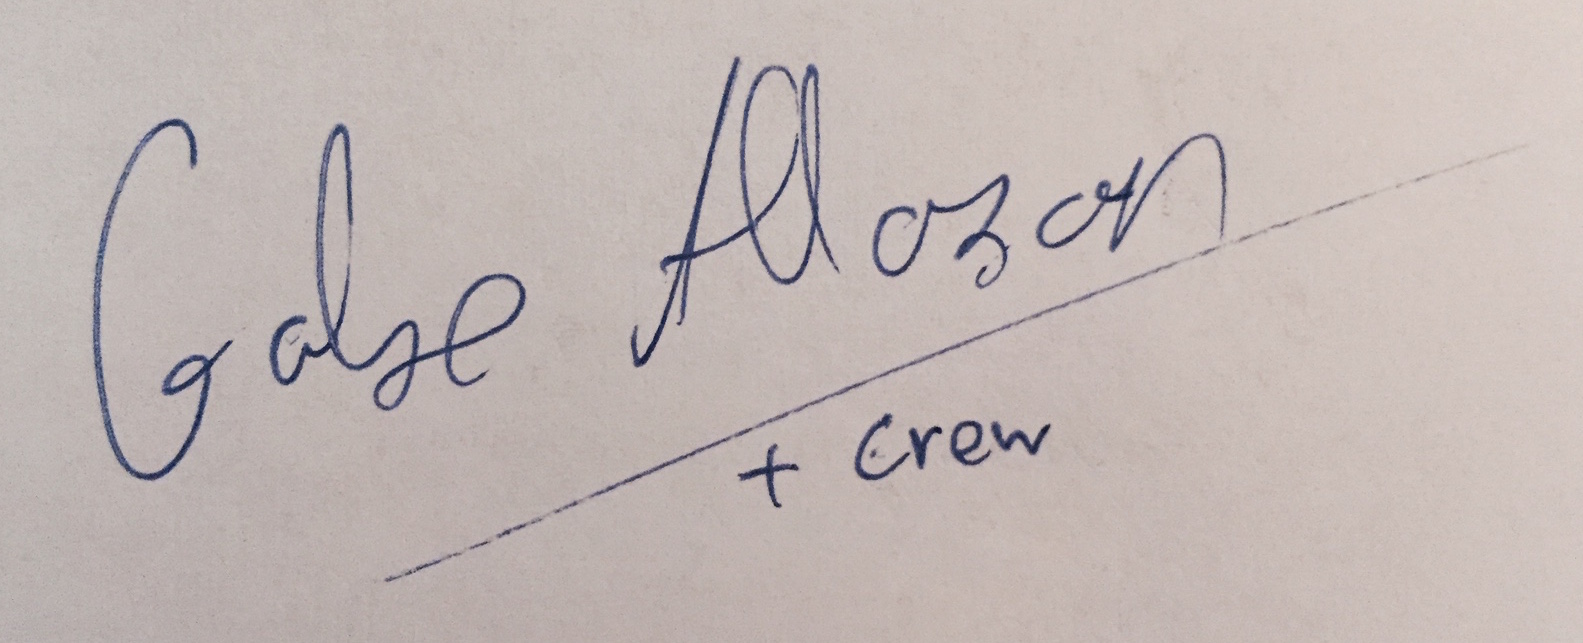 Gabe Allozon
+ crew